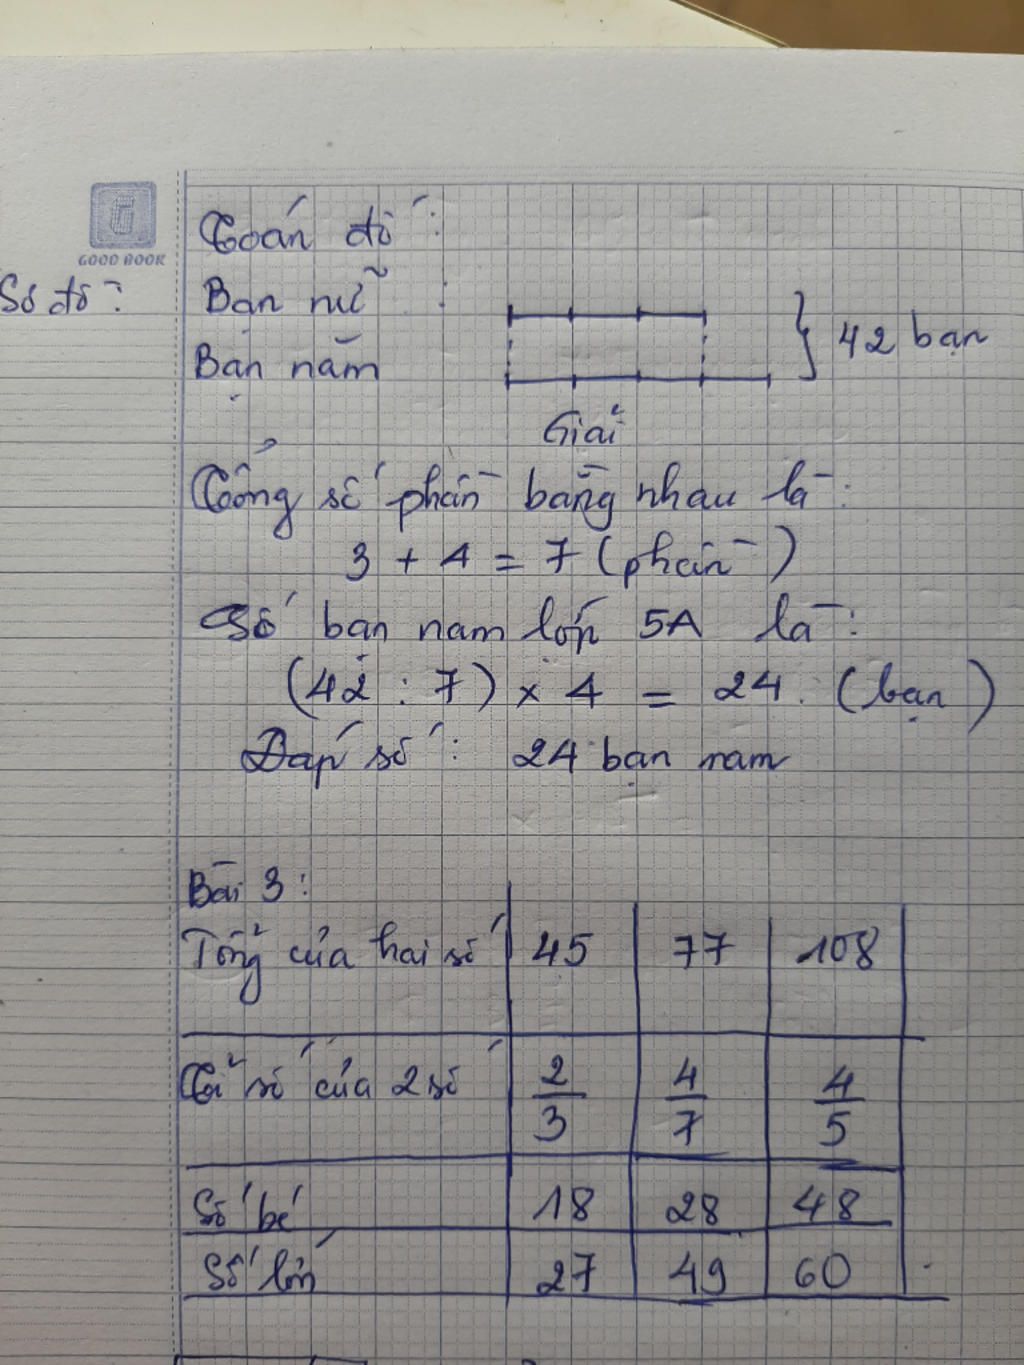 GOOD BOOK
Toán đố:
Sơ đồ: Bạn nữ : } 42 bạn
Bạn nam
Giải
Tổng số phần bằng nhau là:
3 + 4 = 7 (phần)
Số bạn nam lớp 5A là:
(42 : 7) x 4 = 24 (bạn)
Đáp số: 24 bạn nam
Bài 3:
Tổng của hai số 45 77 108
Tỉ số của 2 số 2/3 4/7 4/5
Số bé 18 28 48
Số lớn 27 49 60